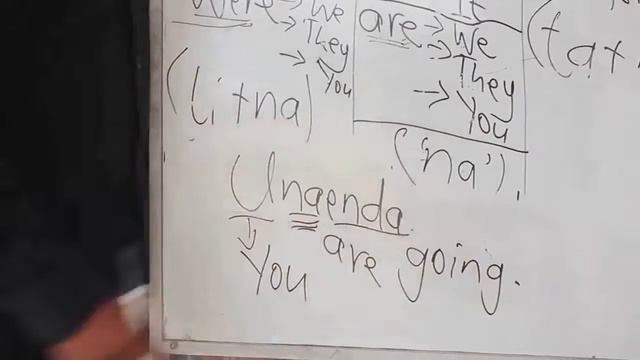 Were → We
→ They
→ You
(li+na)
It
are → We
→ They
→ You
('na')
(ta+
Unaenda.
You are going.